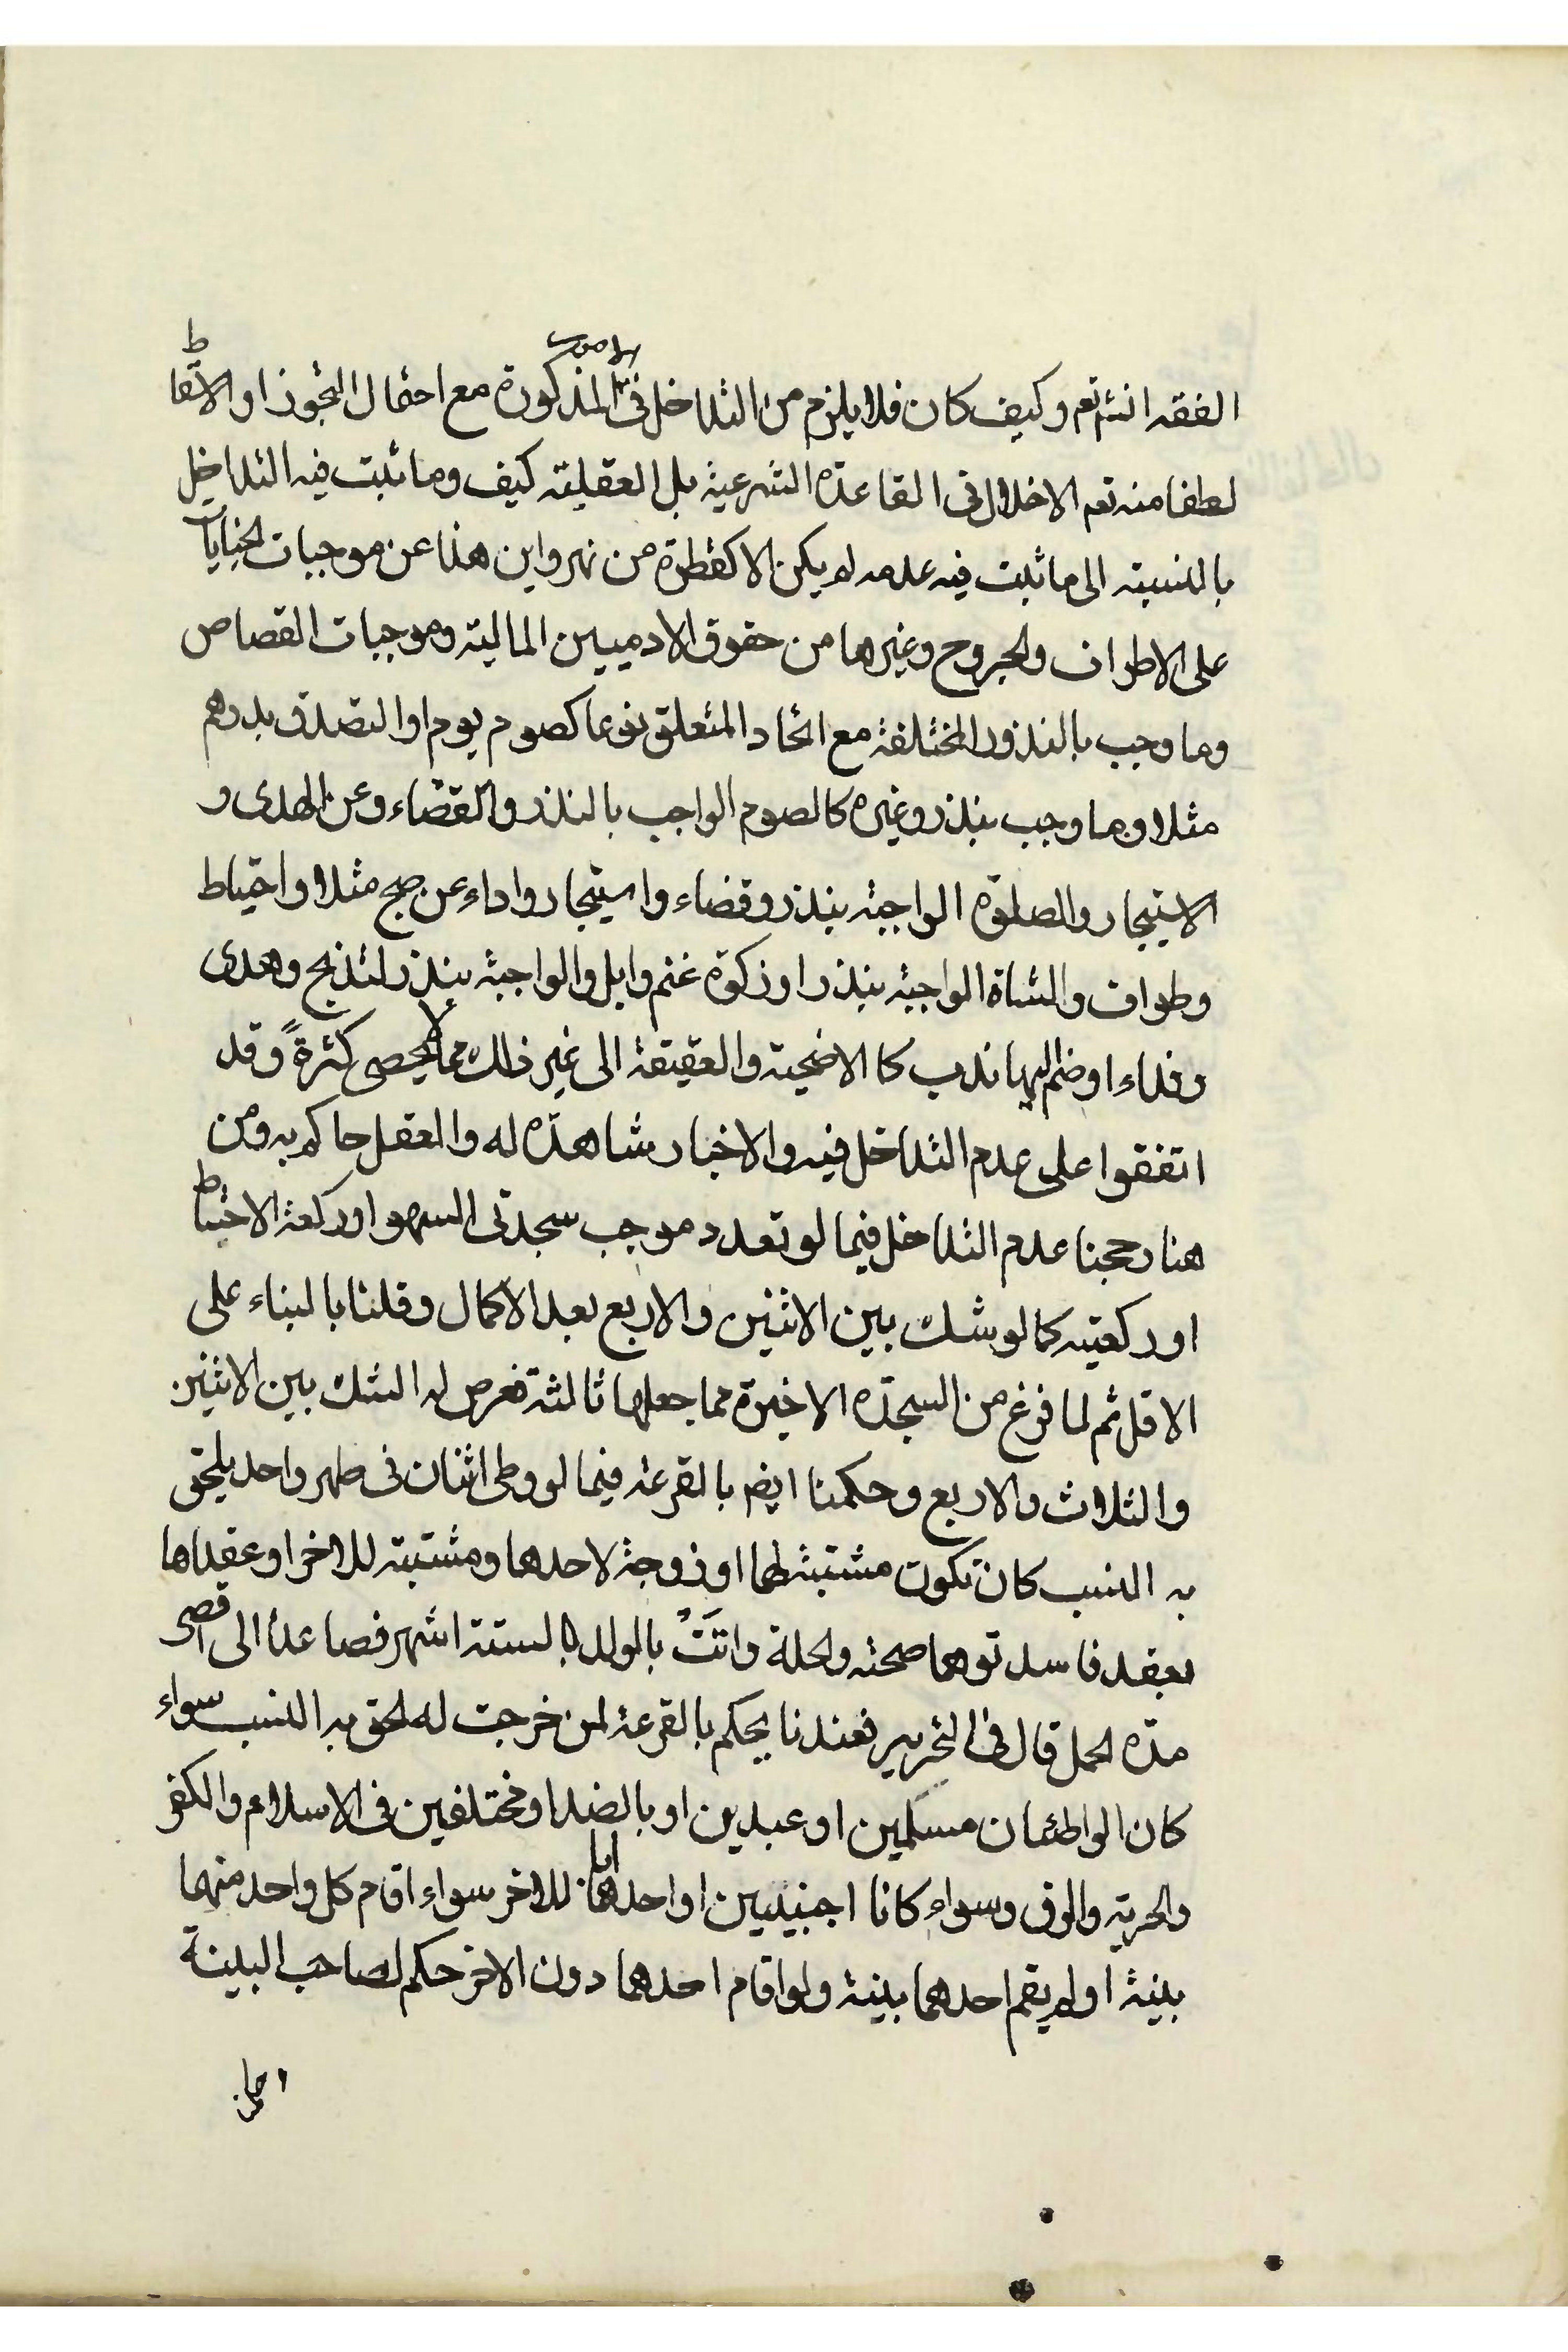 الفقه انشم تعم وكيف كان فلا يلزم من التداخل فى الامور المذكورة مع احتمال التجوز او الاسقاط
لطفا منه تعم الاخلال فى القاعدة الشرعية بل العقلية كيف وما ثبت فيه التداخل
بالنسبة الى ما ثبت فيه عدمه لم يكن الا كقطرة من نهر واين هذا عن موجبات الجنايات
على الاطراف والجروح وغيرها من حقوق الادميين المالية وموجبات القصاص
وما وجب بالنذور المختلفة مع اتحاد المتعلق نوعا كصوم يوم او التصدق بدرهم
مثلا وما وجب بنذر وغيره كالصوم الواجب بالنذر والقضاء وعن الهدى و
الاستيجار والصلوة الواجبة بنذر وقضاء واستيجار واداء عن صبح مثلا واحتياط
وطواف والشاة الواجبة بنذر او زكوة غنم وابل والواجبة بنذر لتذبح وهدى
وفداء او ضم اليها ندب كالاضحية والعقيقة الى غير ذلك مما لا يحصى كثرةً وقد
اتفقوا على عدم التداخل فيه والاخبار شاهدة له والعقل حاكم به ومن
هنا رجحنا عدم التداخل فيما لو تعدد موجب سجدتى السهو او ركعة الاحتياط
او ركعتيه كما لو شك بين الاثنين والاربع بعد الاكمال وقلنا بالبناء على
الاقل ثم لما فرغ من السجدة الاخيرة مما جعلها ثالثة فعرض له الشك بين الاثنين
والثلاث والاربع وحكمنا ايضم بالقرعة فيما لو وطى اثنان فى طهر واحد يلحق
به النسب كان تكون مشتبثة لهما او زوجة لاحدهما ومشتبثة للاخر او عقداها
بعقد فاسد توهما صحته ولحلة واتَتْ بالولد لستة اشهر فصاعدا الى اقصى
مدة الحمل قال فى التحرير فعندنا يحكم بالقرعة لمن خرجت له لحق به النسب سواء
كان الواطئان مسلمين او عبدين او بالضد او مختلفين فى الاسلام والكفر
والحرية والرق وسواء كانا اجنبيين او احدهما ابا للاخر سواء اقام كل واحد منهما
بينة او لم يقم احدهما بينة ولو اقام احدهما دون الاخر حكم لصاحب البينة